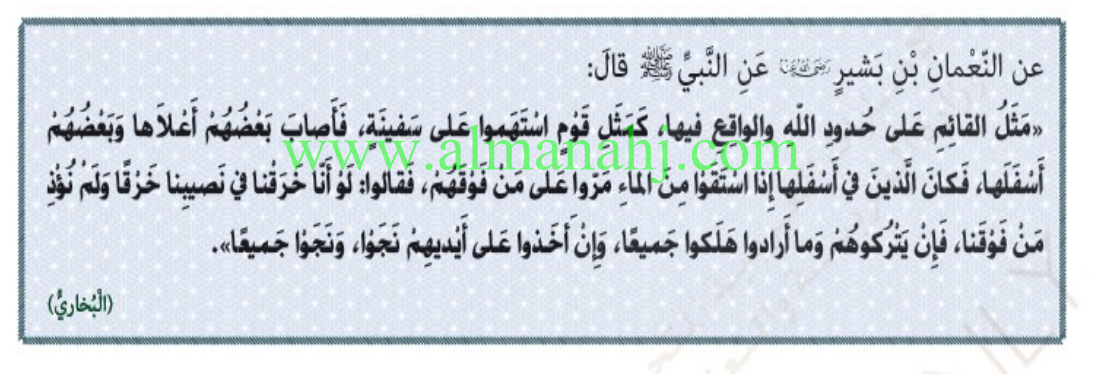 عن النّعْمانِ بْنِ بَشيرٍ رَضِيَ اللهُ عَنْهُمَا عَنِ النَّبيِّ ﷺ قالَ:
«مَثَلُ القائِمِ عَلى حُدودِ اللّه والواقِعِ فيها، كَمَثَلِ قَوْمٍ اسْتَهَموا عَلى سَفينَةٍ، فَأَصابَ بَعْضُهُمْ أَعْلاَها وَبَعْضُهُمْ
www.almanahj.com
أَسْفَلَها، فَكانَ الَّذينَ في أَسْفَلِها إِذا اسْتَقَوْا مِنَ الماءِ مَرّوا عَلى مَنْ فَوْقَهُمْ، فَقالوا: لَوْ أَنّا خَرَقْنا في نَصيبِنا خَرْقًا وَلَمْ نُؤْذِ
مَنْ فَوْقَنا، فَإِنْ يَتْرُكوهُمْ وَما أَرادوا هَلَكوا جَميعًا، وَإِنْ أَخَذوا عَلى أَيْديهِمْ نَجَوْا، وَنَجَوْا جَميعًا».
(الْبُخاريُّ)